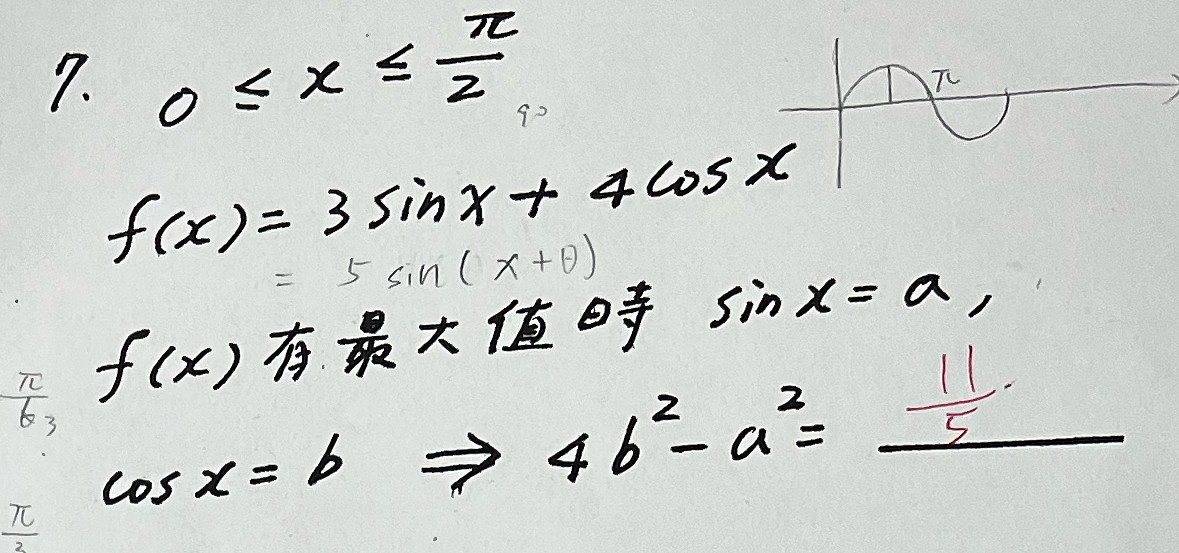 7. 0 ≤ x ≤ π/2
90
π
f(x) = 3 sin x + 4 cos x
= 5 sin(x + θ)
f(x) 有最大值時 sin x = a,
cos x = b ⇒ 4b² - a² = 11/5
π/3